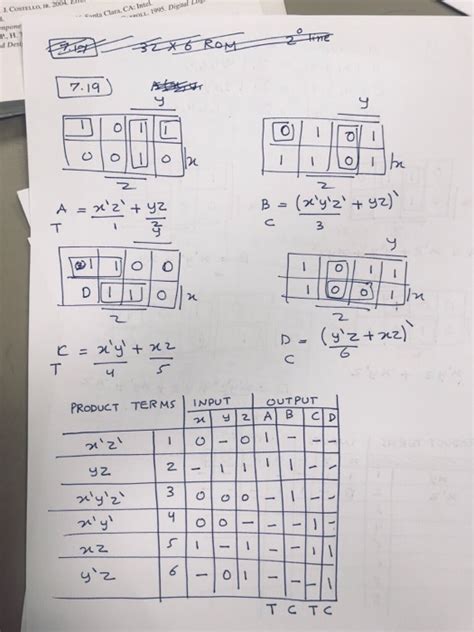 J. COSTELLO, JR. 2004.
Santa Clara, CA: Intel.
1995. Digital
7.19 32 X 6 ROM 2⁰ line
7.19
y
1 0 1 1
0 0 1 0 x
z
A = x'z' + yz
T 1 2
y
0 1 0 1
1 1 0 1 x
z
B = (x'y'z' + yz)'
C 3
1 1 0 0
0 1 1 0 x
z
C = x'y' + xz
T 4 5
y
1 0 1 1
1 0 0 1 x
z
D = (y'z + xz)'
C 6
PRODUCT TERMS INPUT OUTPUT
x y z A B C D
x'z' 1 0 – 0 1 – – –
yz 2 – 1 1 1 1 – –
x'y'z' 3 0 0 0 – 1 – –
x'y' 4 0 0 – – – 1 –
xz 5 1 – 1 – – 1 1
y'z 6 – 0 1 – – – 1
T C T C